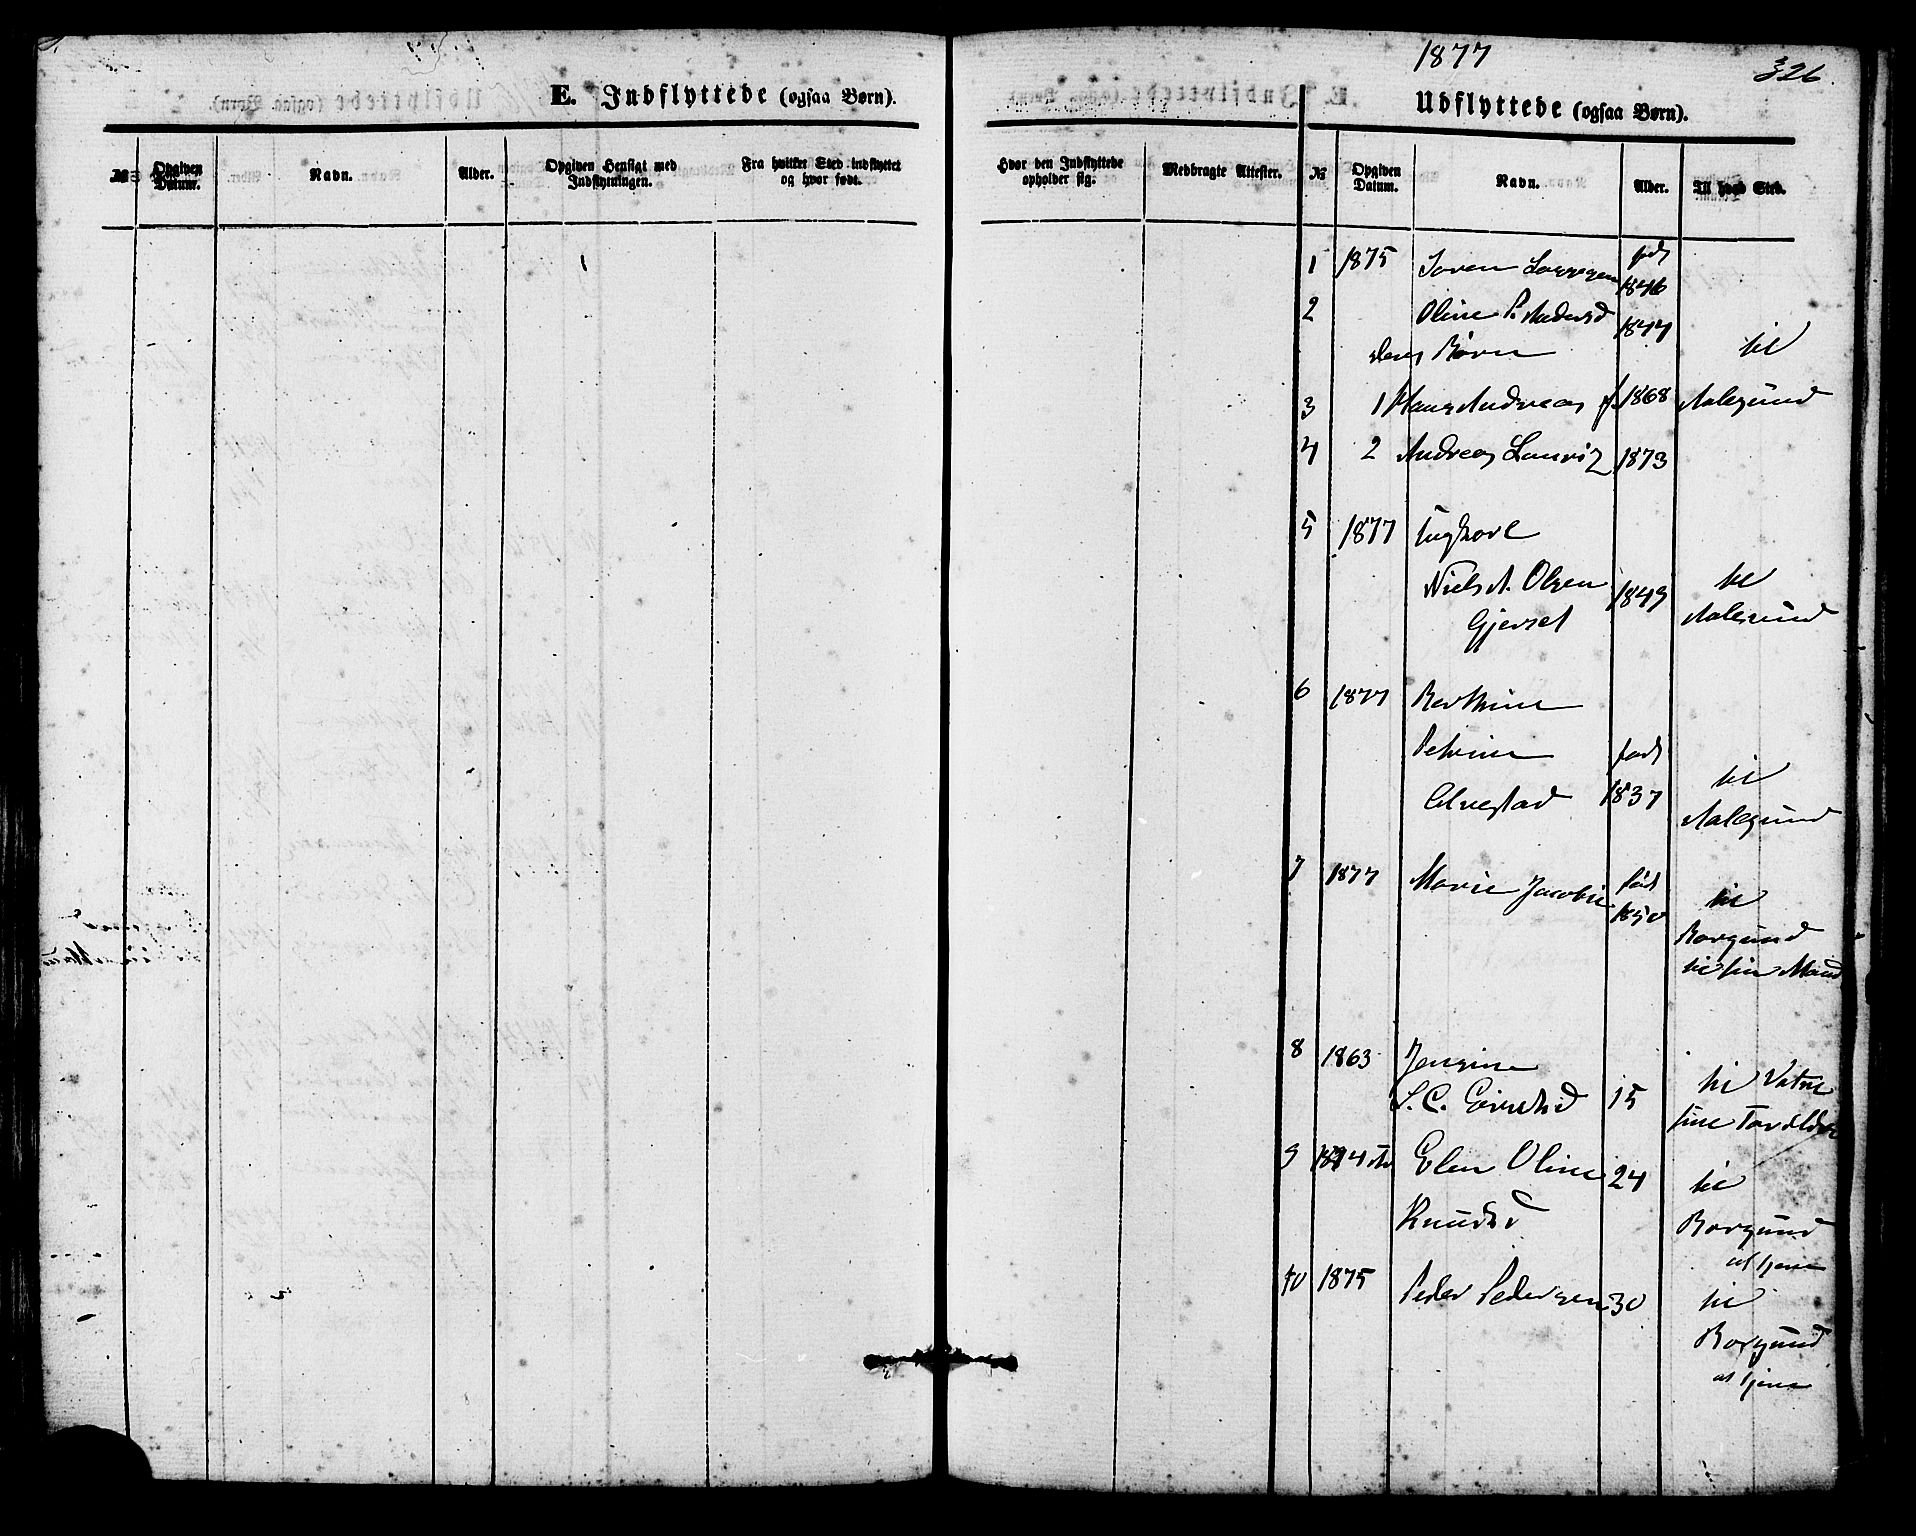 1877
326
E. Indflyttede (ogsaa Børn).
№
Opgiven Datum.
Navn.
Alder.
Opgiven Hensigt med Indflytningen.
Fra hvilket Sted indflyttet og hvor født.
Hvor den Indflyttede opholder sig.
Medbragte Attester.
Udflyttede (ogsaa Børn).
№
Opgiven Datum.
Navn.
Alder.
Til hvad Sted.
1 1875 Soren født
1846
2 Oline P. Andersd 1844
deres Børn til
3 1 Hans Andreas f. 1868 Aalesund
4 2 Andreas Lauriz 1873
5 1877 Ungkarl
Niels A. Olsen 1849 til
Gjerset Aalesund
6 1877 Berthine
Petrine født
Alvestad 1837 til
Aalesund
7 1877 Marie Jacobine født
1850 til
Borgund
til sin Mand
8 1863 Jensine
15 til Vatne
sine Forældre
9 Elen Oline 24 til
Knudsd Borgund
at tjene
10 1875 Peder Pedersen 30 til
Borgund
at tjene